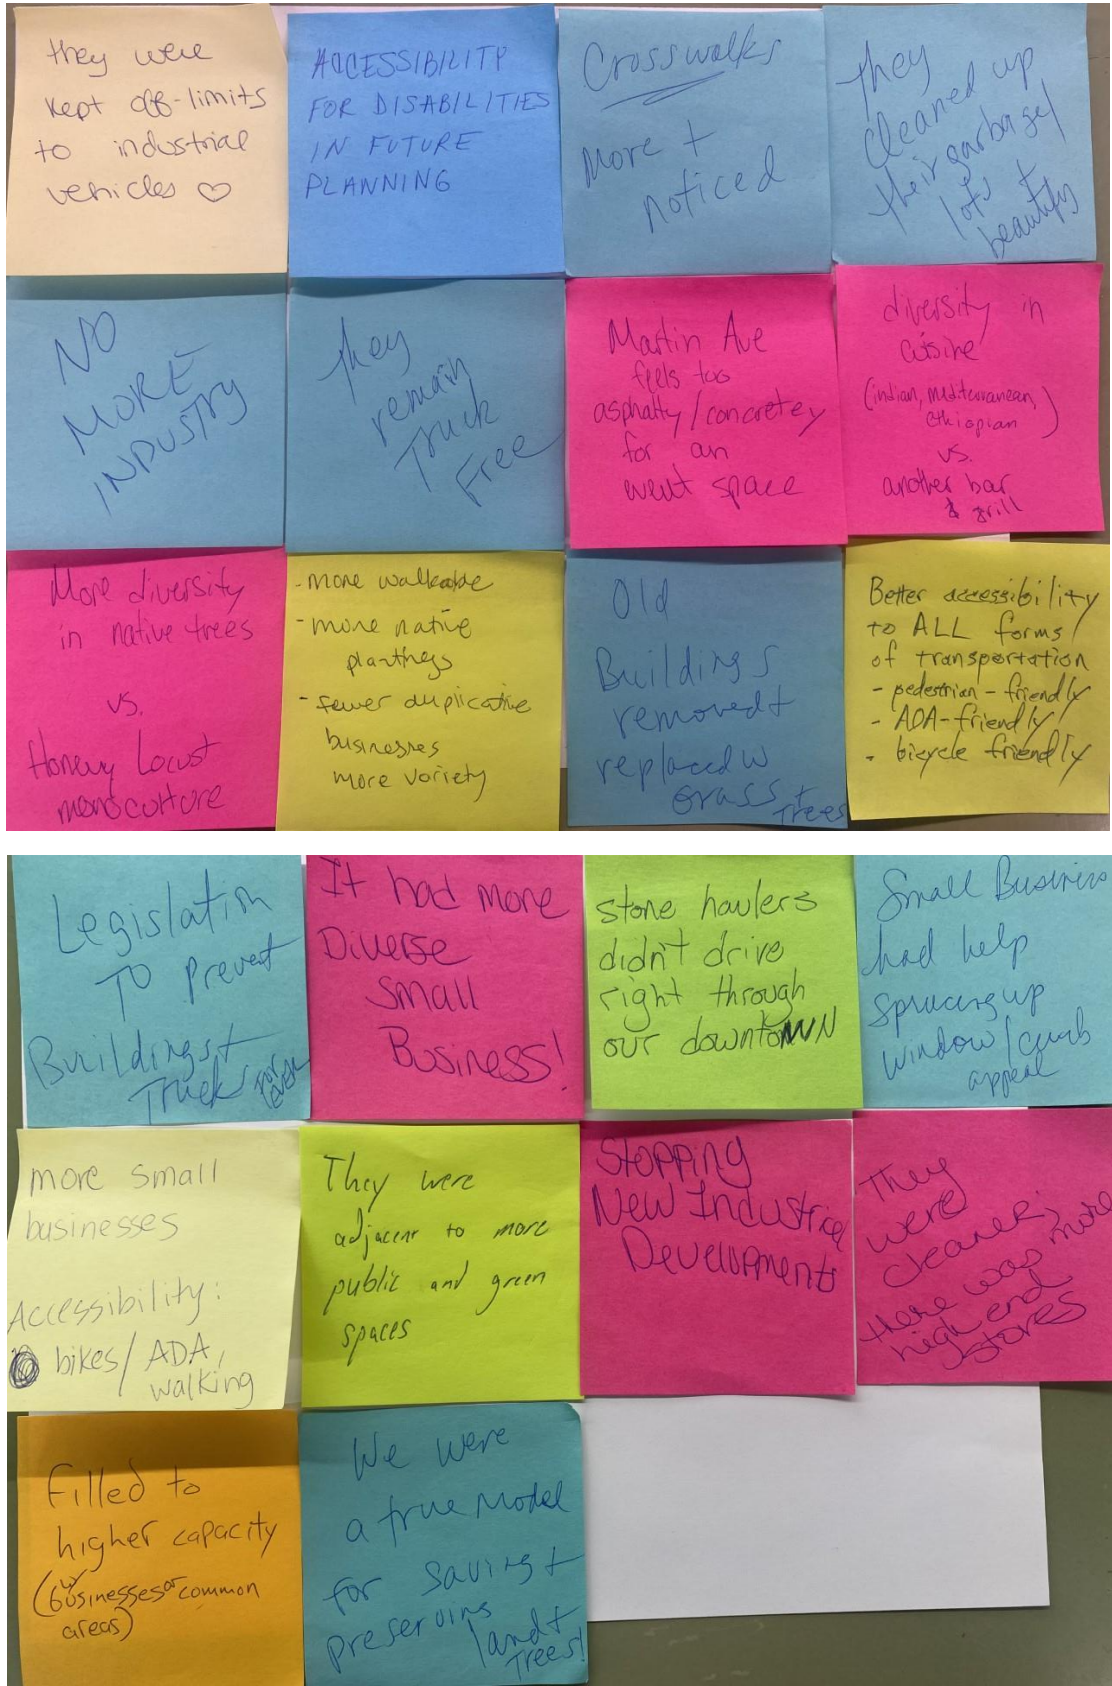 they were
kept off-limits
to industrial
vehicles ♡
ACCESSIBILITY
FOR DISABILITIES
IN FUTURE
PLANNING
Crosswalks
more +
noticed
they
cleaned up
their garbage/
lots +
beautify
NO
MORE
INDUSTRY
they
remain
Truck
Free
Martin Ave
feels too
asphalty/concretey
for an
event space
diversity in
cuisine
(indian, mediterranean,
ethiopian)
vs.
another bar
& grill
More diversity
in native trees
vs.
Honey Locust
monoculture
- more walkable
- more native
plantings
- fewer duplicative
businesses
more variety
Old
Buildings
removed +
replaced w
Grass +
Trees
Better accessibility
to ALL forms
of transportation
- pedestrian-friendly
- ADA-friendly
- bicycle friendly
Legislation
To prevent
Buildings +
Trucks forever
It had more
Diverse
Small
Business!
stone haulers
didn't drive
right through
our downtown
Small Business
had help
sprucing up
window/curb
appeal
more small
businesses
Accessibility:
bikes/ADA,
walking
They were
adjacent to more
public and green
spaces
Stopping
New Industrial
Developments
They
were
cleaner;
there was more
high end
stores
Filled to
higher capacity
(w/ businesses or common
areas)
We were
a true model
for saving +
preserving
land +
Trees!